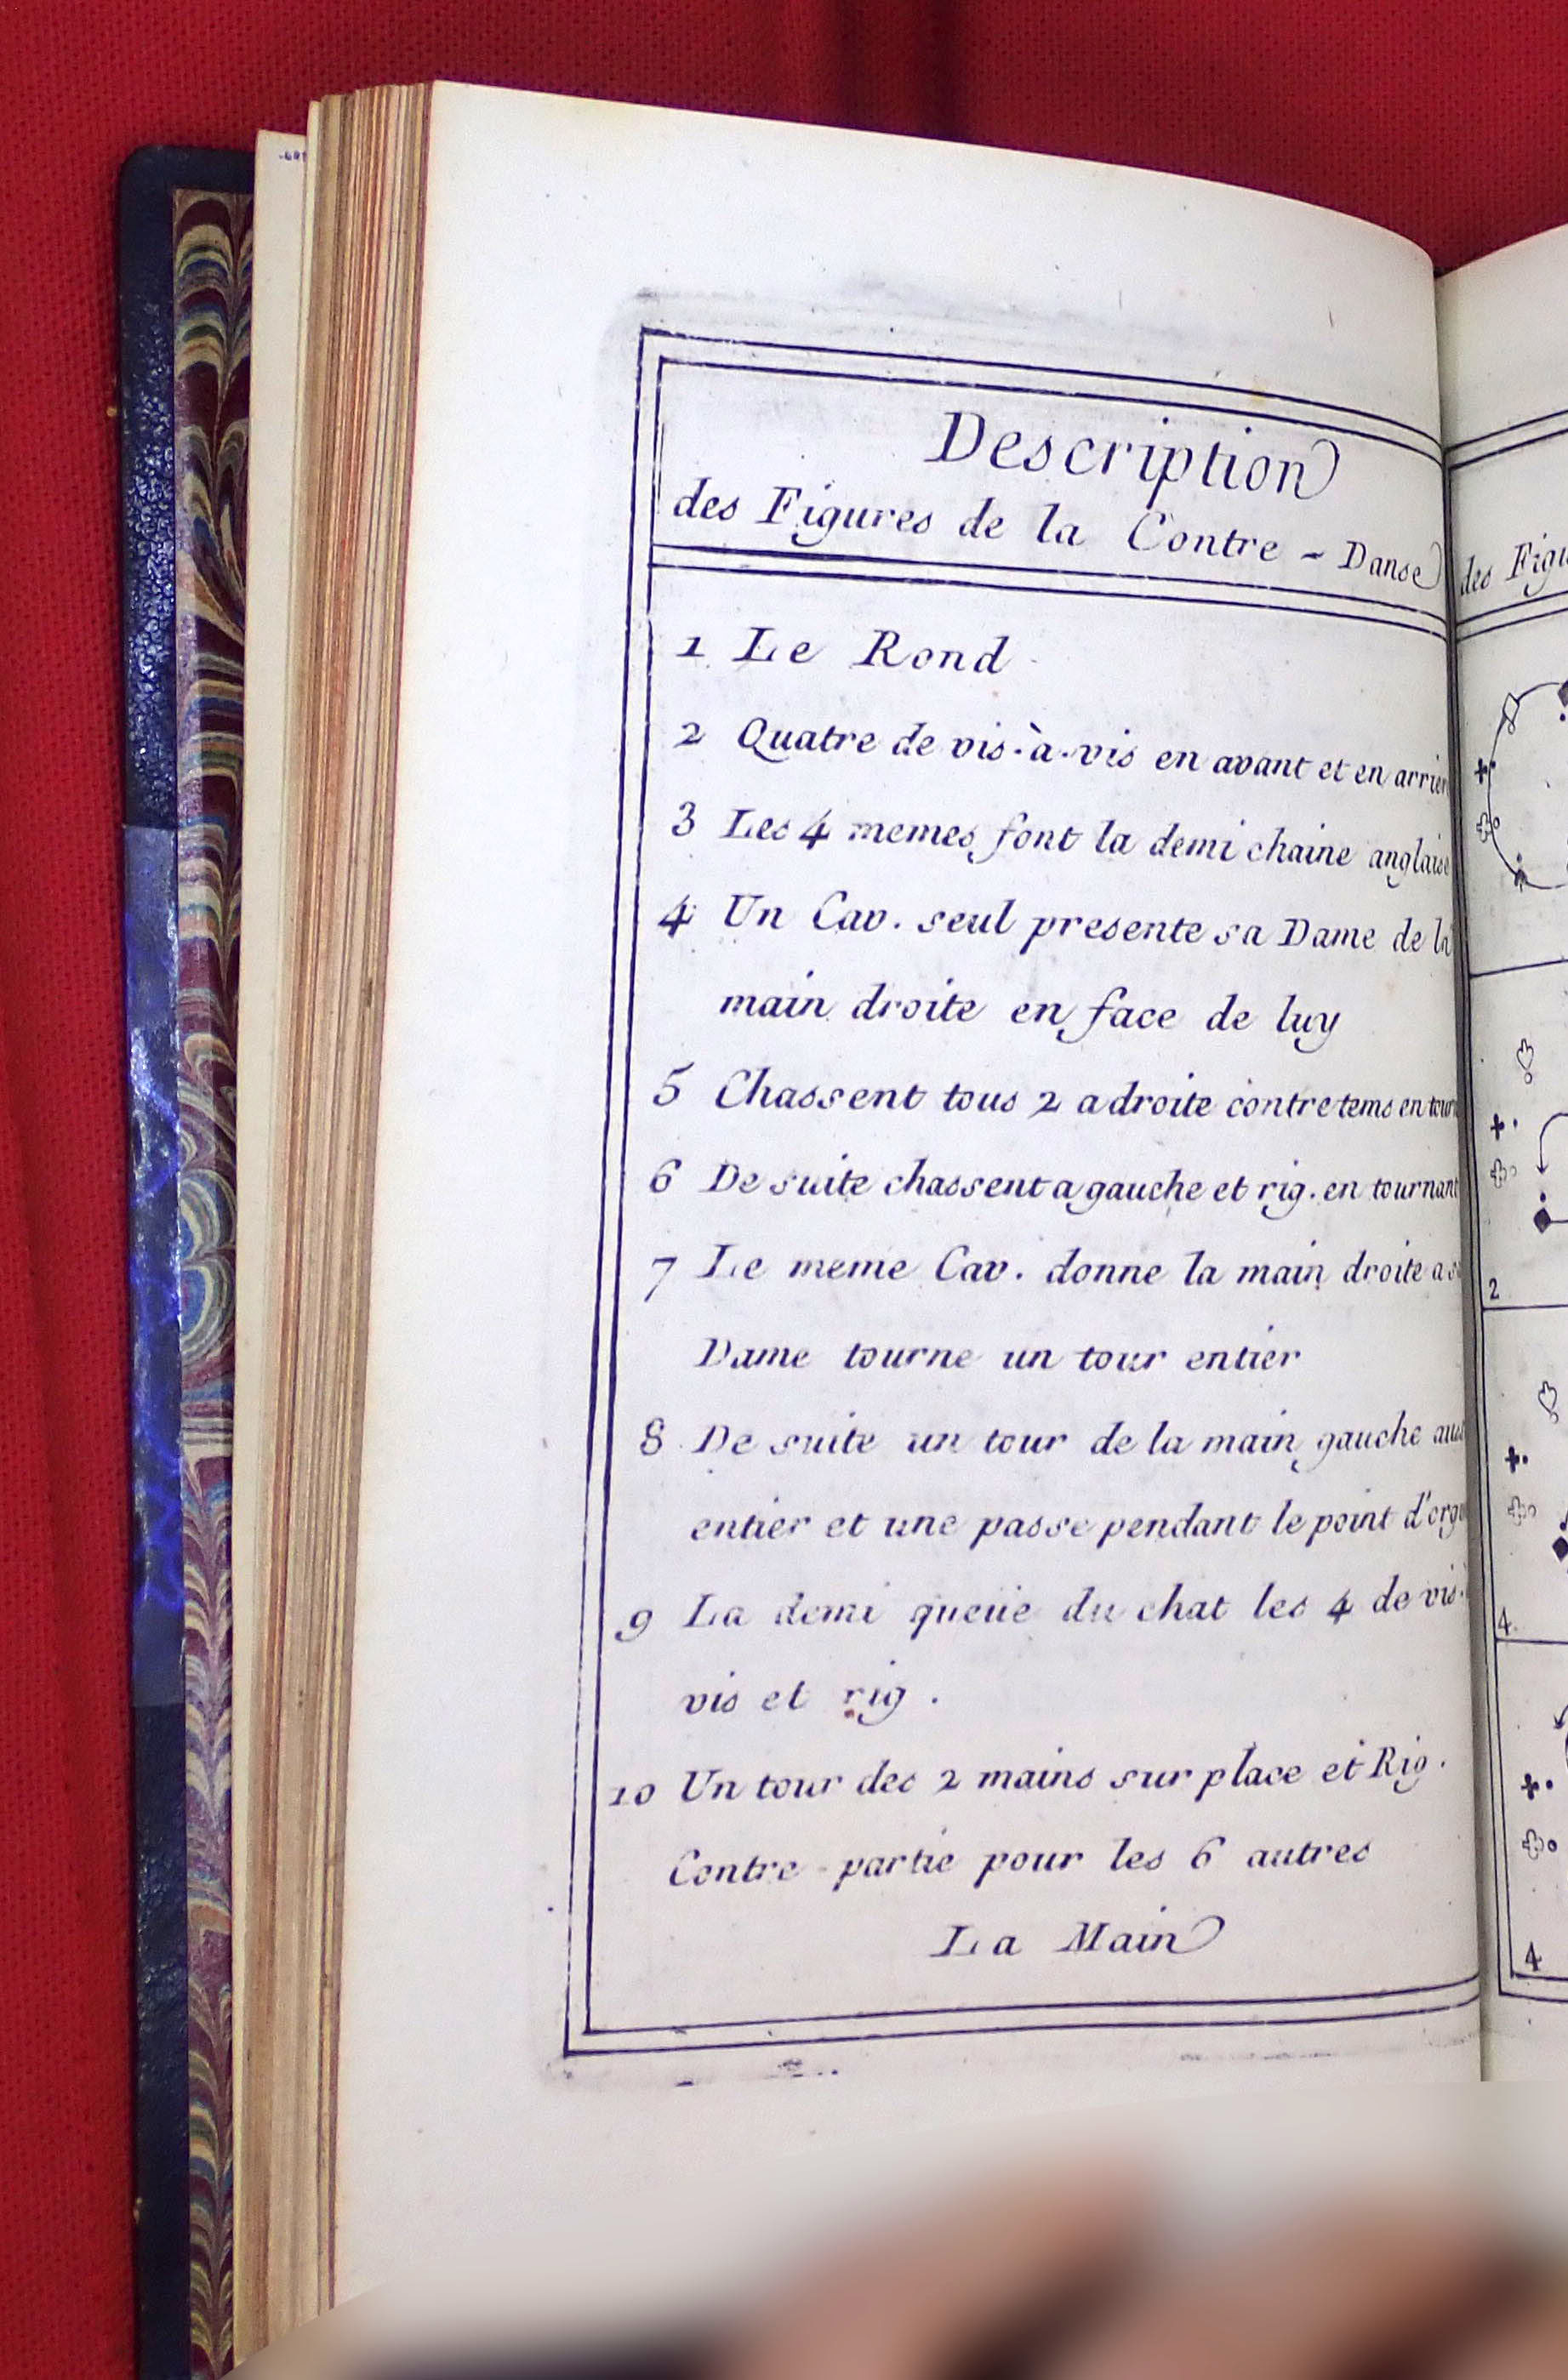 Description
des Figures de la Contre - Danse
1 Le Rond
2 Quatre de vis-à-vis en avant et en
3 Les 4 memes font la demi chaine anglaise
4 Un Cav. seul presente sa Dame de la
main droite en face de luy
5 Chassent tous 2 a droite contretems en
6 De suite chassent a gauche et rig. en tournant
7 Le meme Cav. donne la main droite a
Dame tourne un tour entier
8 De suite un tour de la main gauche
entier et une passe pendant le point
9 La demi queüe du chat les 4 de vis-
vis et rig.
10 Un tour des 2 mains sur place et Rig.
Contre-partie pour les 6 autres
La Main
des
2
4.
4